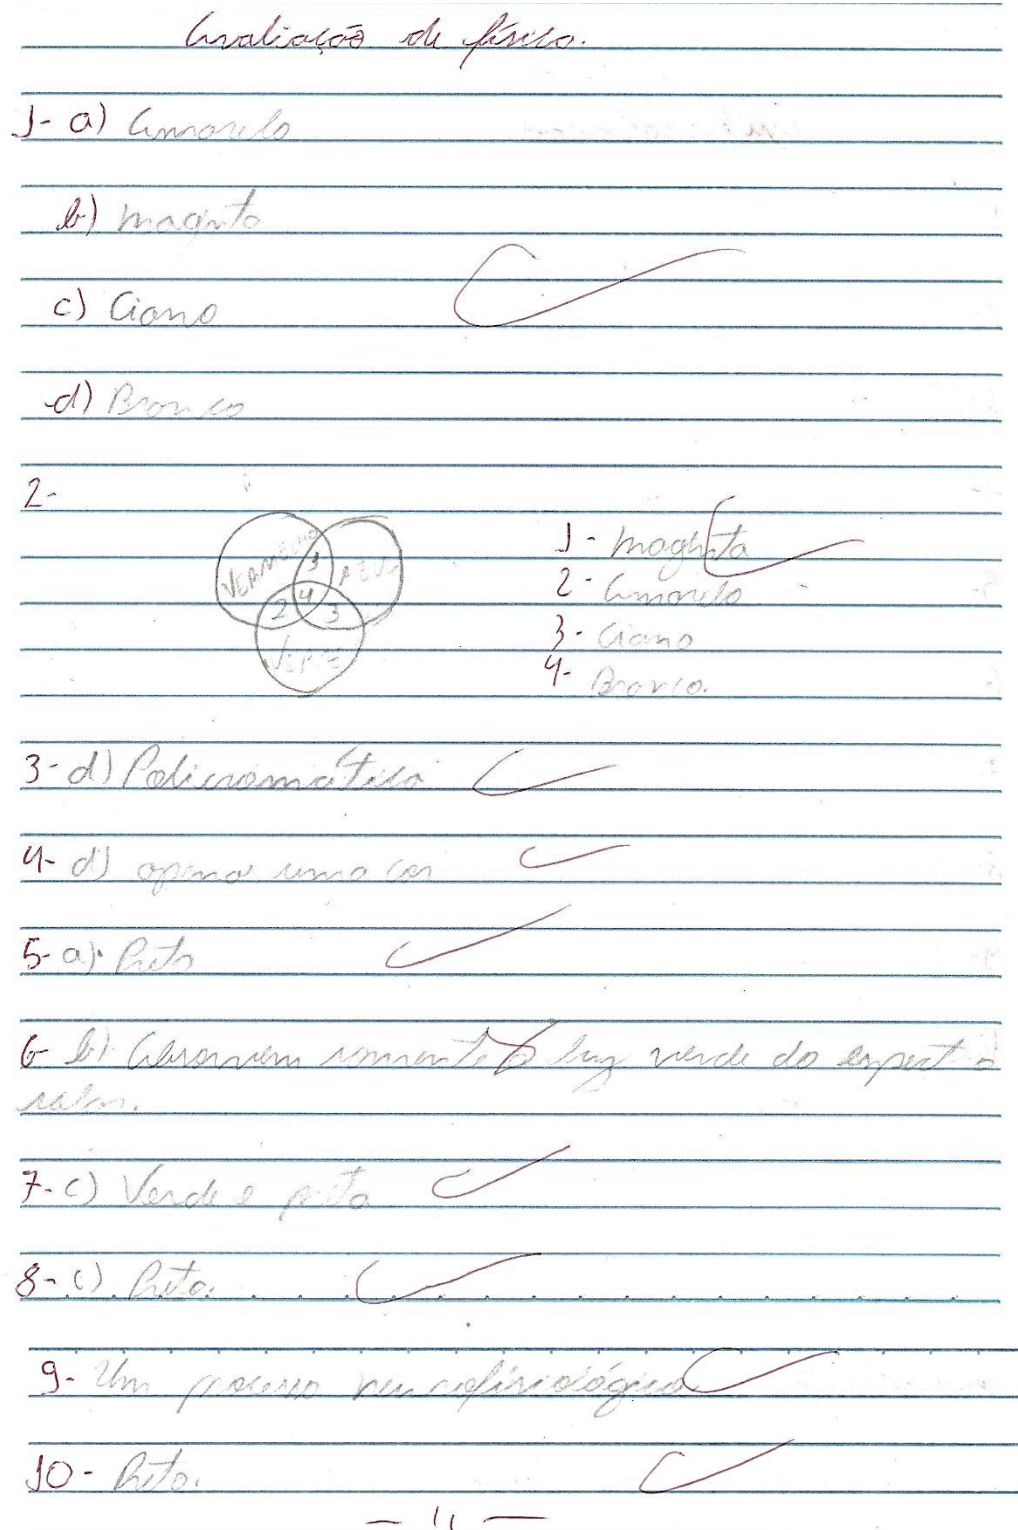 Avaliação de física.
1- a) Amarelo
b) magnta
c) Ciano
d) Branco
2-
VERMELHO 1 AZUL
2 4 3
VERDE
1- maghta
2- Amarelo
3- Ciano
4- Branco.
3- d) Policromática
4- d) apenas uma cor
5- a) Preto
6- b) Absorvem somente a luz verde do espectro
solar.
7- c) Verde e preta
8- c) Preto.
9- Um processo neurofisiológico
10- Preto.